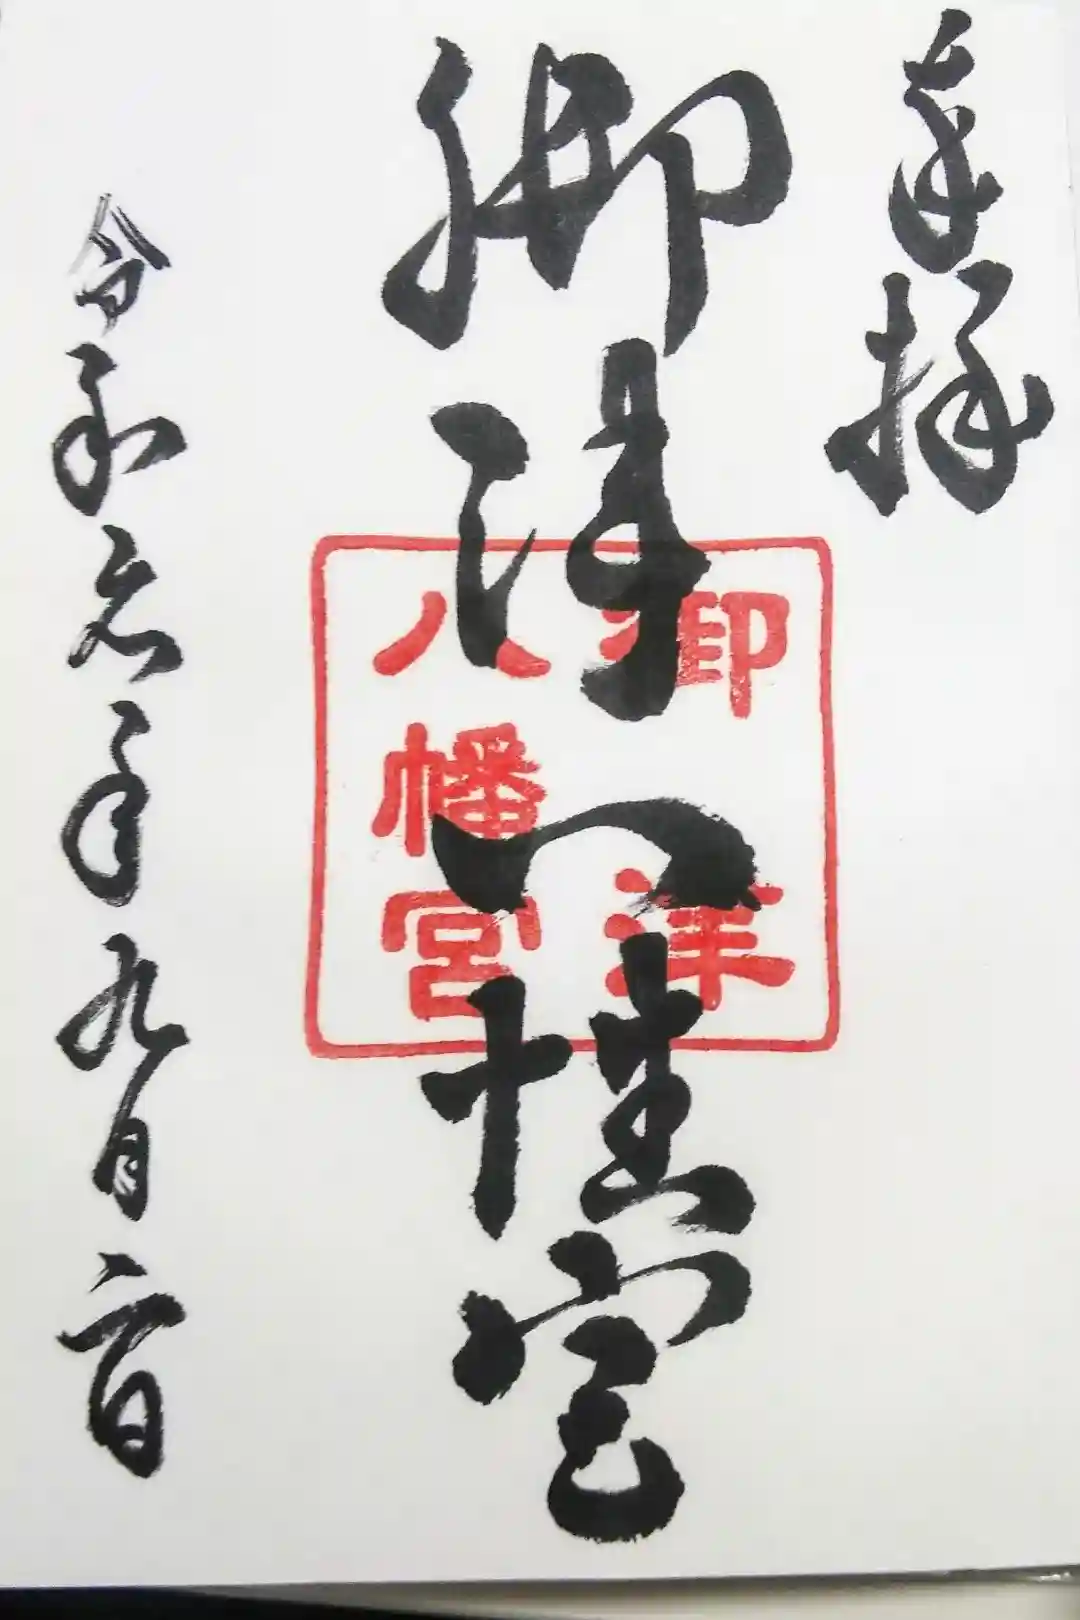 奉拝
御津八幡宮
御津
八幡宮
令和六年九月二日